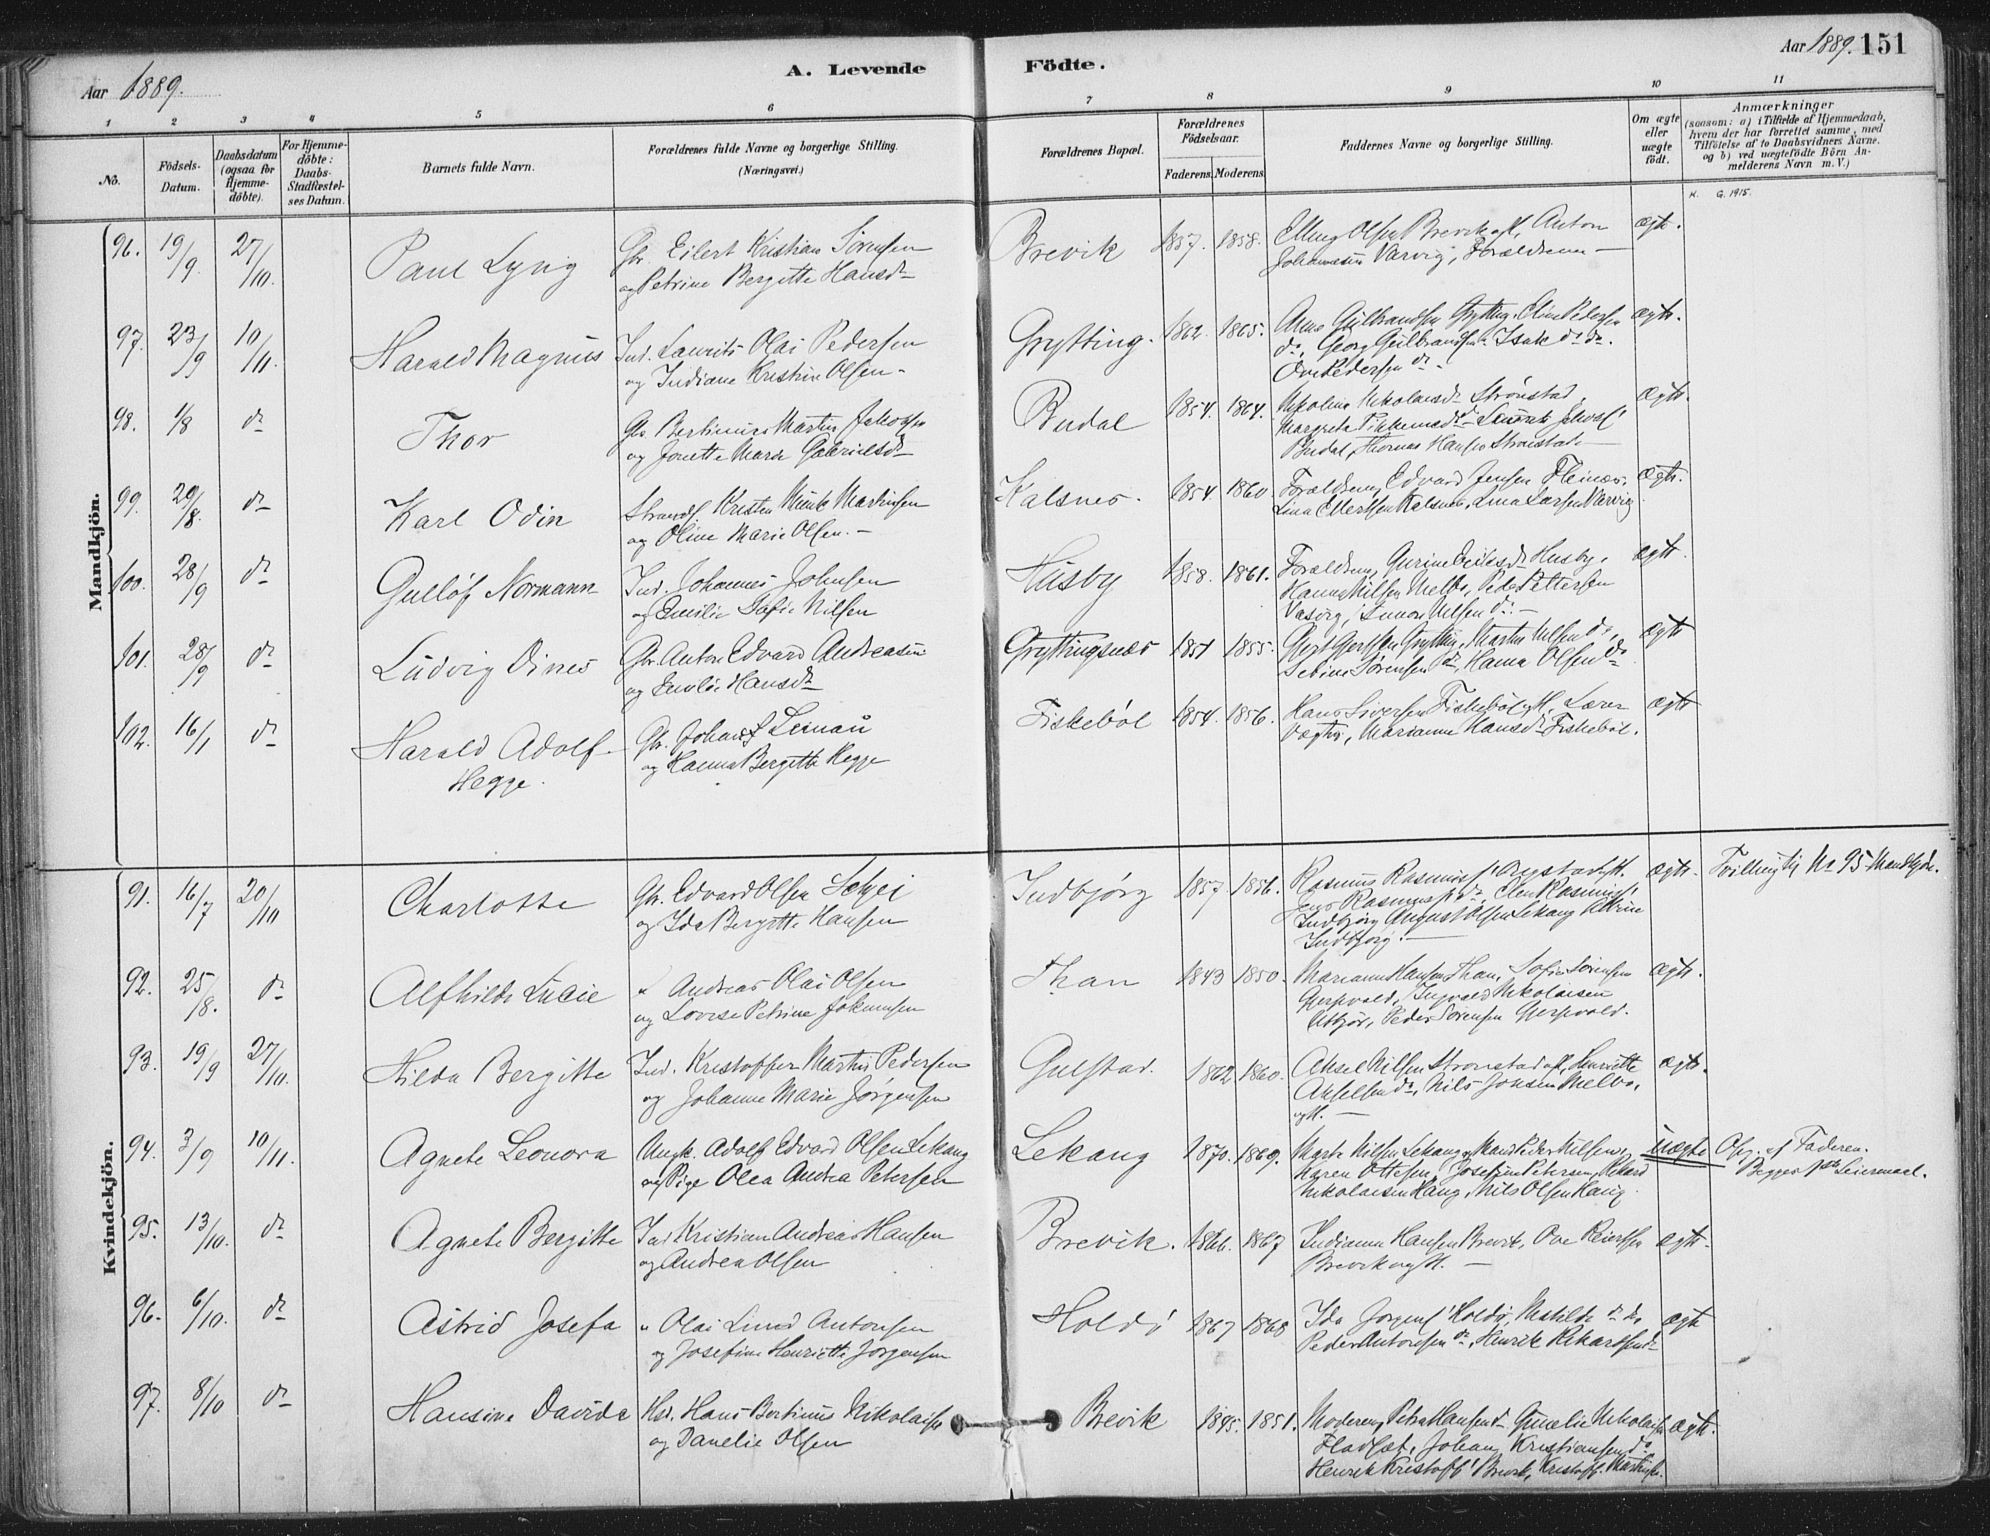 Aar 1889.
A. Levende Födte.
Aar 1889. 151
1 2 3 4 5 6 7 8 9 10 11
No.
Födsels-Datum.
Daabsdatum (ogsaa for Hjemme-döbte).
For Hjemme-döbte: Daabs-Stadfæstel-ses Datum.
Barnets fulde Navn.
Forældrenes fulde Navne og borgerlige Stilling.
(Næringsvei.)
Forældrenes Bopæl.
Forældrenes Födselsaar.
Faderens. Moderens.
Faddernes Navne og borgerlige Stilling.
Om ægte eller uægte födt.
Anmærkninger
(saasom: a) i Tilfælde af Hjemmedaab, hvem der har forrettet samme, med Tilföielse af to Daabsvidners Navne, og b) ved uægtefödte Börn An-melderens Navn m. V.)
K. G. 1915.
Mandkjön.
96. 19/9 27/10. Paul Lyng
Gbr. Eilert Kristian Sörensen
og Petrine Bergitte Hansdr
Brevik 1857. 1858.
Elling Olsen Brevik, Anton
Johannesen Varvig, Forældrene —
ægte.
97. 23/9 10/11. Harald Magnus
Ind. Laurits Olai Pedersen
og Indiane Kristine Olsen.
Grytting. 1862. 1865.
Arne Gulbrandsen Grytting, Eline Petersen
do, Georg Gulbrandsen, Isak do do.
Ove Pedersen do.
ægte.
98. 1/8 do Thor
Gbr. Bertinus Martin Jakobsen
og Jonette Marie Gabrielsdr
Budal 1854. 1864.
Nikoline Nikolaisdr Strönstad,
Margreta
Budal, Thomas Hansen Strönstad —
ægte.
99. 29/8. do Karl Odin
Kristen Munk Martinsen
og Oline Marie Olsen. —
Kalsnes. 1854. 1860.
Forældrene, Edvard Jensen Fleines,
Lina Ellertsen Kalsnes, Lina Larsen Varvig
ægte.
100. 28/9 do Gulløf Normann
Ind. Johannes Johnsen
og Emilie Sofie Nilsen
Husby 1858. 1861.
Forældrene, Gurine Husby,
Hanna Nilsen Melbo, Peder Pettersen
Nilsen do. —
ægte.
101. 28/9 do Ludvig Dines
Gbr. Anton Edvard Andreasen
og Emilie Hansdr
Gryttingsnæs 1851 1855.
Grytting, Martin Nilsen do,
Sörensen do, Hanna Olsen do
ægte
102. 16/1 do Harald Adolf
Hegge.
Gbr. Johan
og Hanna Bergitte Hegge
Fiskeböl 1854. 1856.
Hans Siversen Fiskeböl, Lærer
Marianne Hansdr Fiskeböl.
ægte
Kvindekjön.
91. 16/7 20/10 Charlotte
Gbr. Edvard Olsen
og Ida Bergitte Hansen
Indbjörg 1857 1856.
Rasmus
Jens
Indbjörg, August Olsen Lekang
Indbjörg. —
ægte.
Tvilling til No 95 Mandkjön.
92. 25/8. do Alfhilde Lucie
" Andreas Olai Olsen
og Lovise Petrine
Than 1843 1850.
Marianne Hansen Than, Sofie Sörensen
Ingvald Nikolaisen
Utbjör, Peder Sörensen
ægte.
93. 19/9 27/10. Hilda Bergitte
Ind. Kristoffer Martin Pedersen
og Johanne Marie Jørgensen
Gulstad. 1862 1860.
Aksel Nilsen Strönstad, Henriette
Akselsen do, Nils Jonsen Melbo,
ægte.
94. 3/9 10/11. Agnete Leonora
Ungk. Adolf Edvard Olsen Lekang
og Pige Olea Andrea Petersen
Lekang 1870. 1869.
Marte Nilsen Lekang, Peder Nilsen do,
Karen Ottesen, Josefine Petersen, Rikard
Nikolaisen Haug, Nils Olsen Haug.
uægte
Opg. af Faderen.
Begges 1ste Leiermaal.
95. 13/10. do Agnete Bergitte
Ind Kristian Andreas Hansen
og Andrea Olsen
Brevik. 1866. 1867
Indianna Hansen Brevik, Ove
Brevik —
ægte.
96. 6/10. do Astrid Josefa
" Olai Lund Antonsen
og Josefine Henriette Jörgensen
Holdö 1867 1868
Ida Holdö, Matilde do do
Peder Antonsen do, Henrik Rikardsen do
ægte
97. 8/10 do Hansine Davida
Hans Bertinus Nikolaisen
og Danelie Olsen
Brevik 1845. 1851.
Moderen, Petra Hansen do, Nikolaisen
Fladset, Johan Kristiansen do
Henrik Brevik,
ægte.